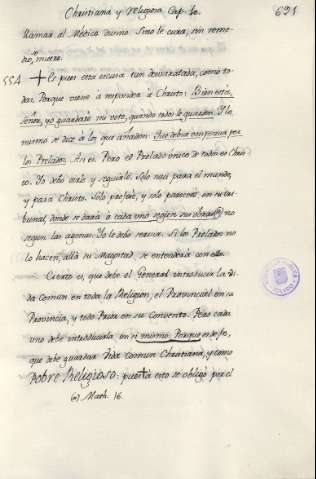 Christiana y Religiosa Cap. 1o.
691
llamar al Medico divino. Sino le cura, sin reme-
dio, muere.
55A + Es pues esta escusa tan desvaratada, como to-
das. Porque viene a imponerse à Christo: Bien está,
Señor, yo guardaré mi voto, quando todos le guarden. Y lo
mismo se dice à los que añaden: Que deben empezar por
los Prelados. Assi es. Pero el Prelado unico de todos es Chris-
to. Yo debo oirle, y seguirle. Solo naci para el mundo,
y para Christo. Solo profesé, y solo pareceré, en su tri-
bunal, donde se dará à cada uno segun sus obras (a) no
segun las agenas. Yo le debo seguir. Si los Prelados no
lo hacen, allá su Magestad, se entenderá con ellos.
Cierto es, que debe el General introducir la Vi-
da Comun en toda la Religion; el Provincial en su
Provincia, y todo Prior en su Convento. Pero cada
uno debe introducirla en si mismo. Porque es de fe,
que debe guardar Vida Comun Christiana, y como
pobre Religioso: puesta esto se obligó por el
(a) Math. 16.